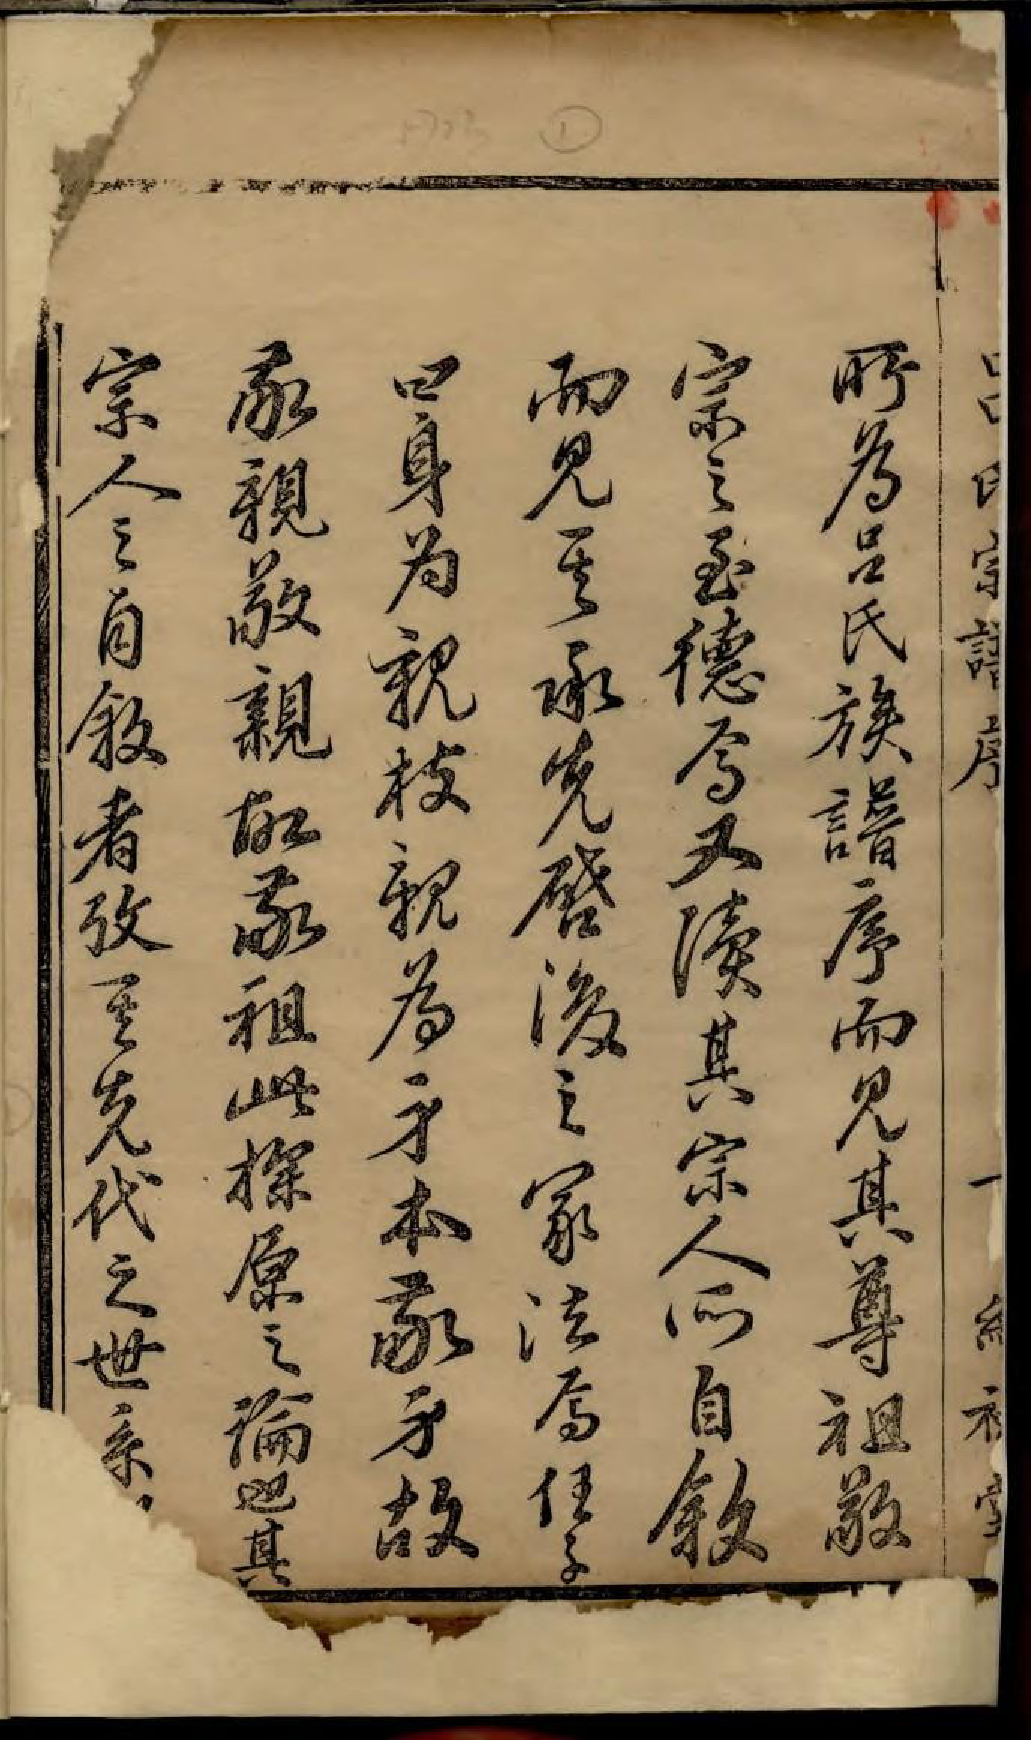 呂氏宗譜序 一 堂
所為呂氏族譜序而見其尊祖敬
宗之至德焉又讀其宗人所自敘
而見其承先啓後之家法焉任子
曰身為親枝親為身本敬身故
敬親敬親故敬祖此探原之論也其
宗人之自敘者攷其先代之世系